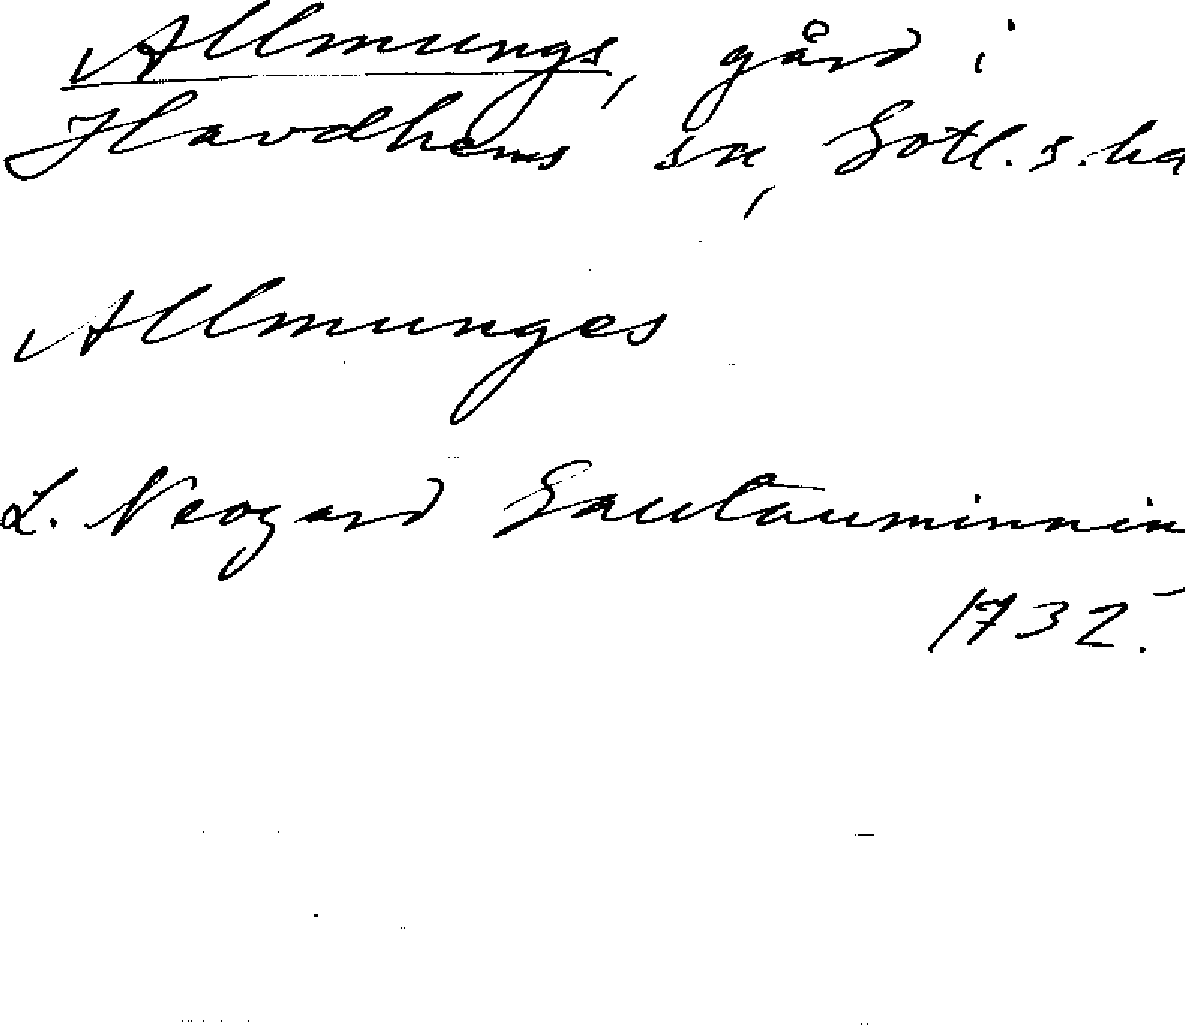 Allmungs, gård i
Havdhems sn, Gotl. s. hd
Allmunges
L. Neogard Gautauminnin
1732.